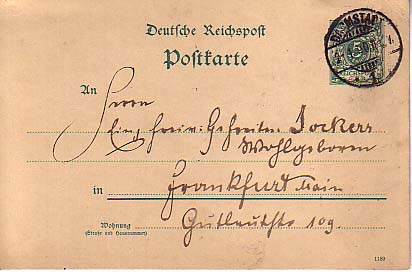 Deutsche Reichspost
Postkarte
DARMSTADT
5
An
Herrn
Einj. freiw. Gefreiten Jockers
Wohlgeboren
in Frankfurt Main
Wohnung
(Straße und Hausnummer)
Gutleutstr 109.
1189